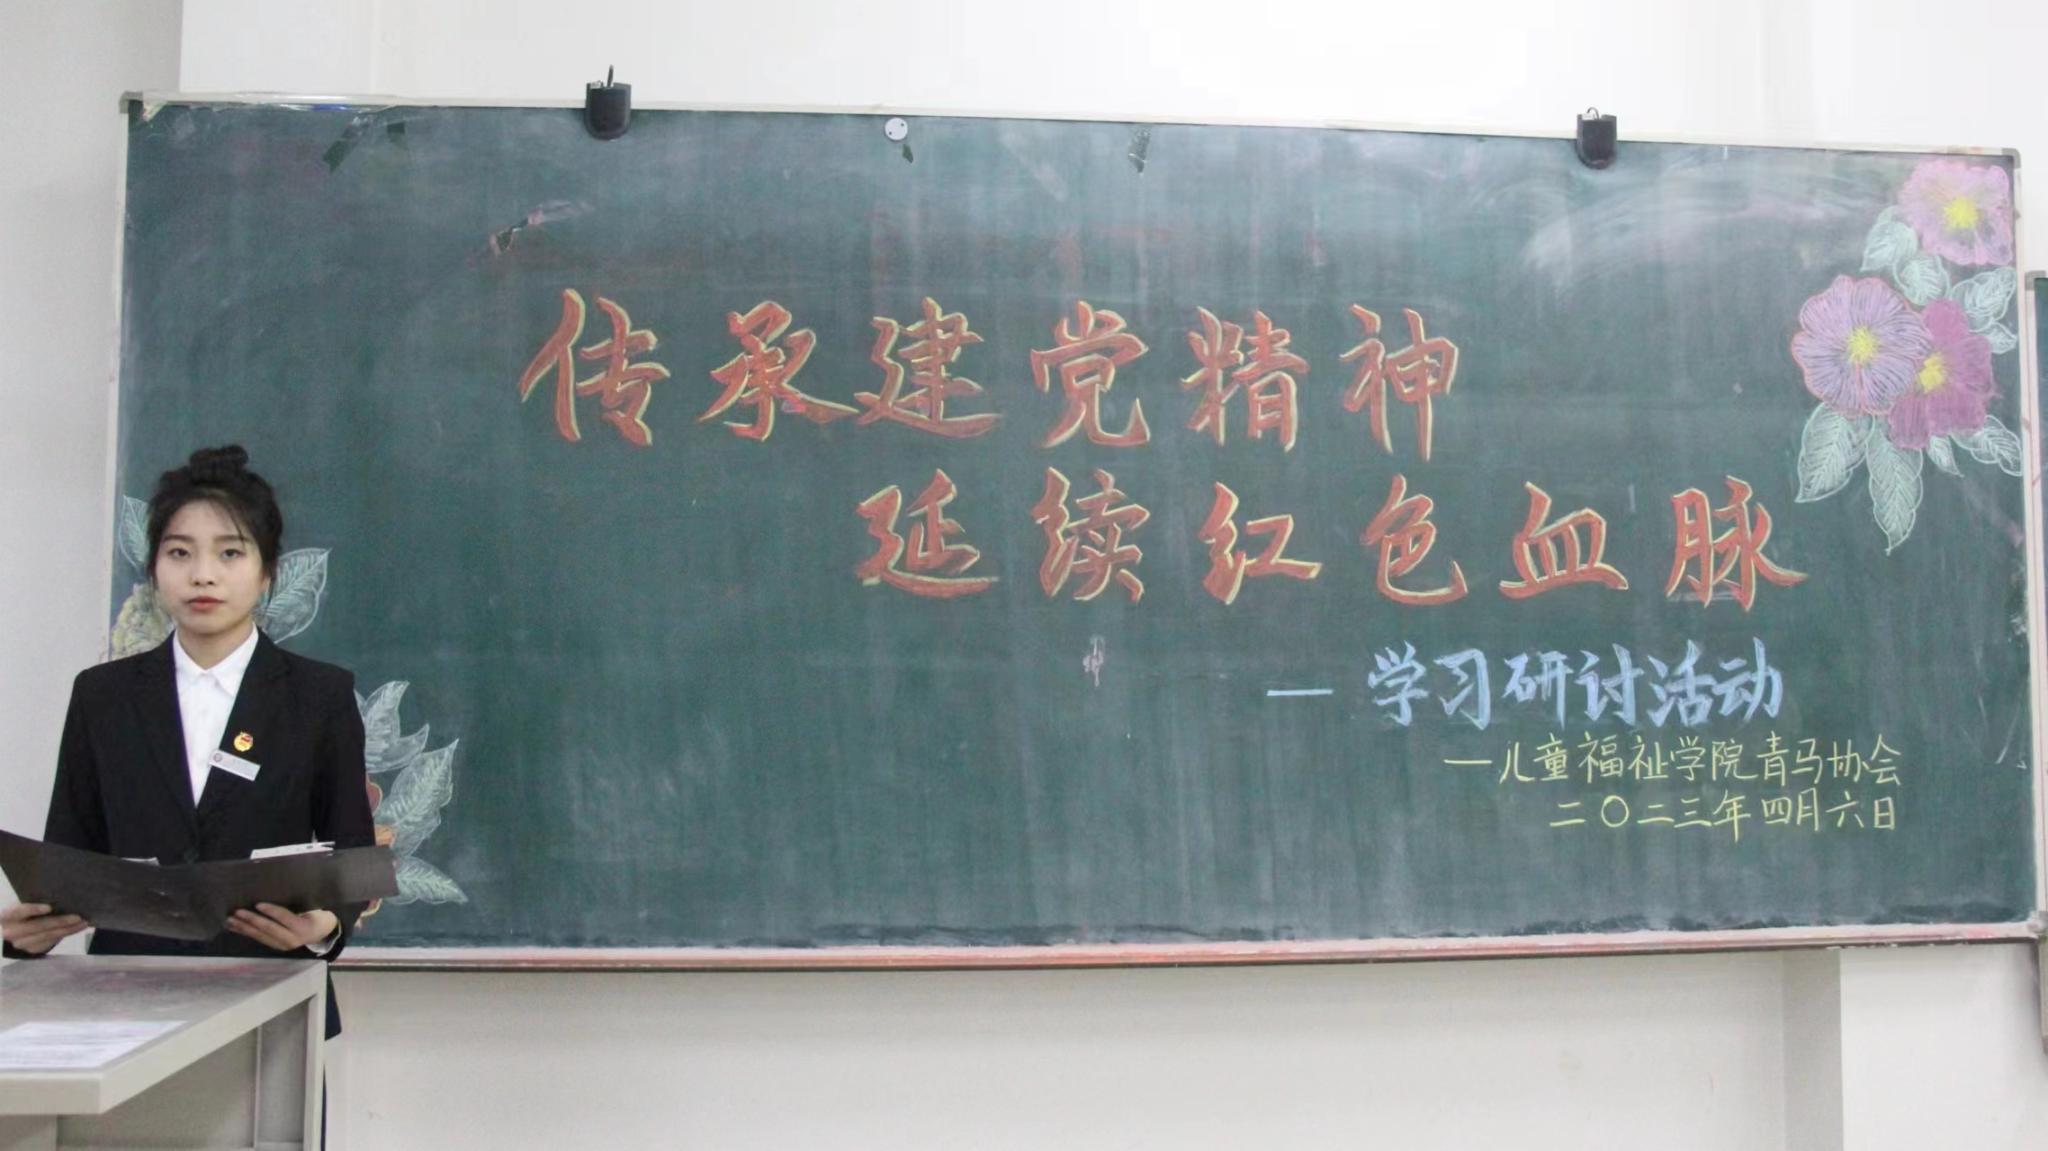 传承建党精神
延续红色血脉
— 学习研讨活动
—儿童福祉学院青马协会
二〇二三年四月六日